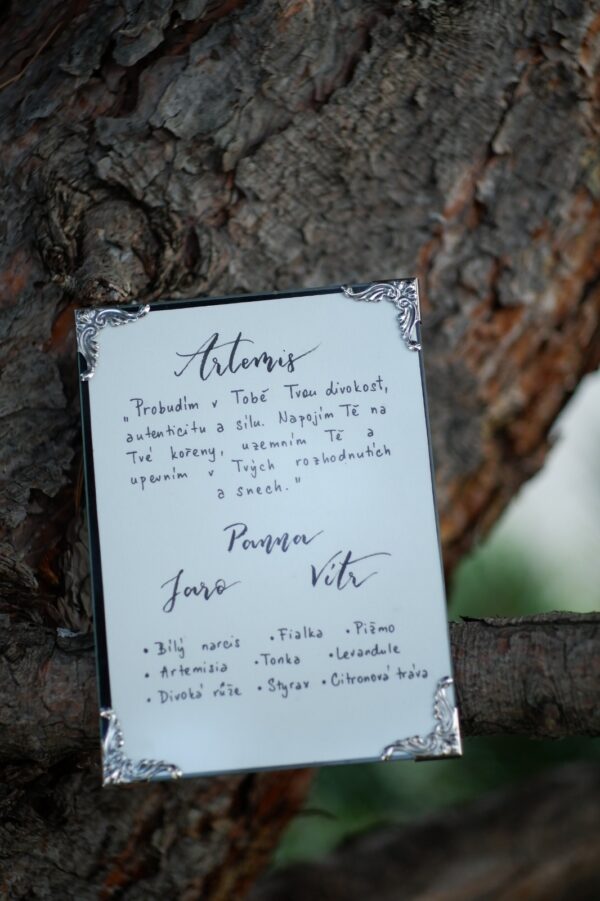 Artemis
„Probudím v Tobě Tvou divokost,
autenticitu a sílu. Napojím Tě na
Tvé kořeny, uzemním Tě a
upevním v Tvých rozhodnutích
a snech."
Panna
Jaro Vítr
• Bílý narcis • Fialka • Pižmo
• Artemisia • Tonka • Levandule
• Divoká růže • Styrax • Citronová tráva